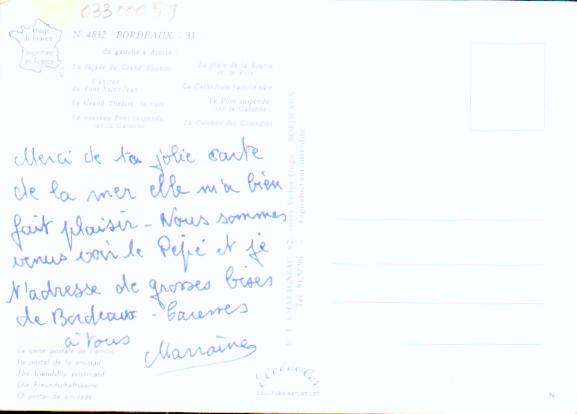 033 000 59
Image
de France
Imprimée
en France
N 4832 BORDEAUX - 33
de gauche à droite :
La façade du Grand Théâtre
La place de la Bourse
et le Port
L'entrée
du Pont Saint Jean
La Cathédrale Saint-André
Le Grand Théâtre, la nuit
Le Pont suspendu
sur la Garonne
Le nouveau Pont suspendu
sur la Garonne
La Colonne des Girondins
Merci de ta jolie carte
de la mer elle m'a bien
fait plaisir - Nous sommes
venus voir le Pépé et je
t'adresse de grosses bises
de Bordeaux - Caresses
à tous
Marraine
La carte postale de l'amitié
La postal de la amistad
The friendship post card
Die Freundschaftskarte
O postal da amizade
BORDEAUX
Reproduction interdite
COULEURS NATURELLES
N